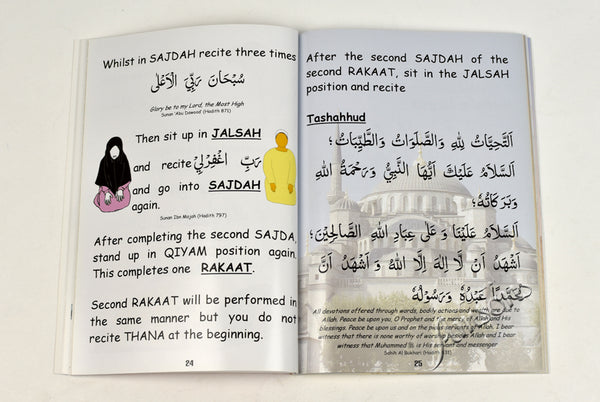 Whilst in SAJDAH recite three times
سُبْحَانَ رَبِّيَ الْأَعْلَى
Glory be to my Lord, the Most High
Sunan 'Abu Dawood (Hadith 871)
Then sit up in JALSAH
and recite رَبِّ اغْفِرْلِيْ
and go into SAJDAH
again.
Sunan Ibn Majah (Hadith 797)
After completing the second SAJDA,
stand up in QIYAM position again.
This completes one RAKAAT.
Second RAKAAT will be performed in
the same manner but you do not
recite THANA at the beginning.
24
After the second SAJDAH of the
second RAKAAT, sit in the JALSAH
position and recite
Tashahhud
اَلتَّحِيَّاتُ لِلّٰهِ وَالصَّلَوَاتُ وَالطَّيِّبَاتُ؛
اَلسَّلَامُ عَلَيْكَ اَيُّهَا النَّبِيُّ وَرَحْمَةُ اللهِ
وَبَرَكَاتُهُ؛
اَلسَّلَامُ عَلَيْنَا وَعَلٰى عِبَادِ اللهِ الصَّالِحِيْنَ؛
اَشْهَدُ اَنْ لَا اِلٰهَ اِلَّا اللهُ وَ اَشْهَدُ اَنَّ
مُحَمَّدًا عَبْدُهٗ وَرَسُوْلُهٗ
All devotions offered through words, bodily actions and wealth are due to
Allah. Peace be upon you, O Prophet and the mercy of Allah and His
blessings. Peace be upon us and on the pious servants of Allah. I bear
witness that there is none worthy of worship besides Allah and I bear
witness that Muhammed ﷺ is His servant and messenger
Sahih Al Bukhari (Hadith 831)
25